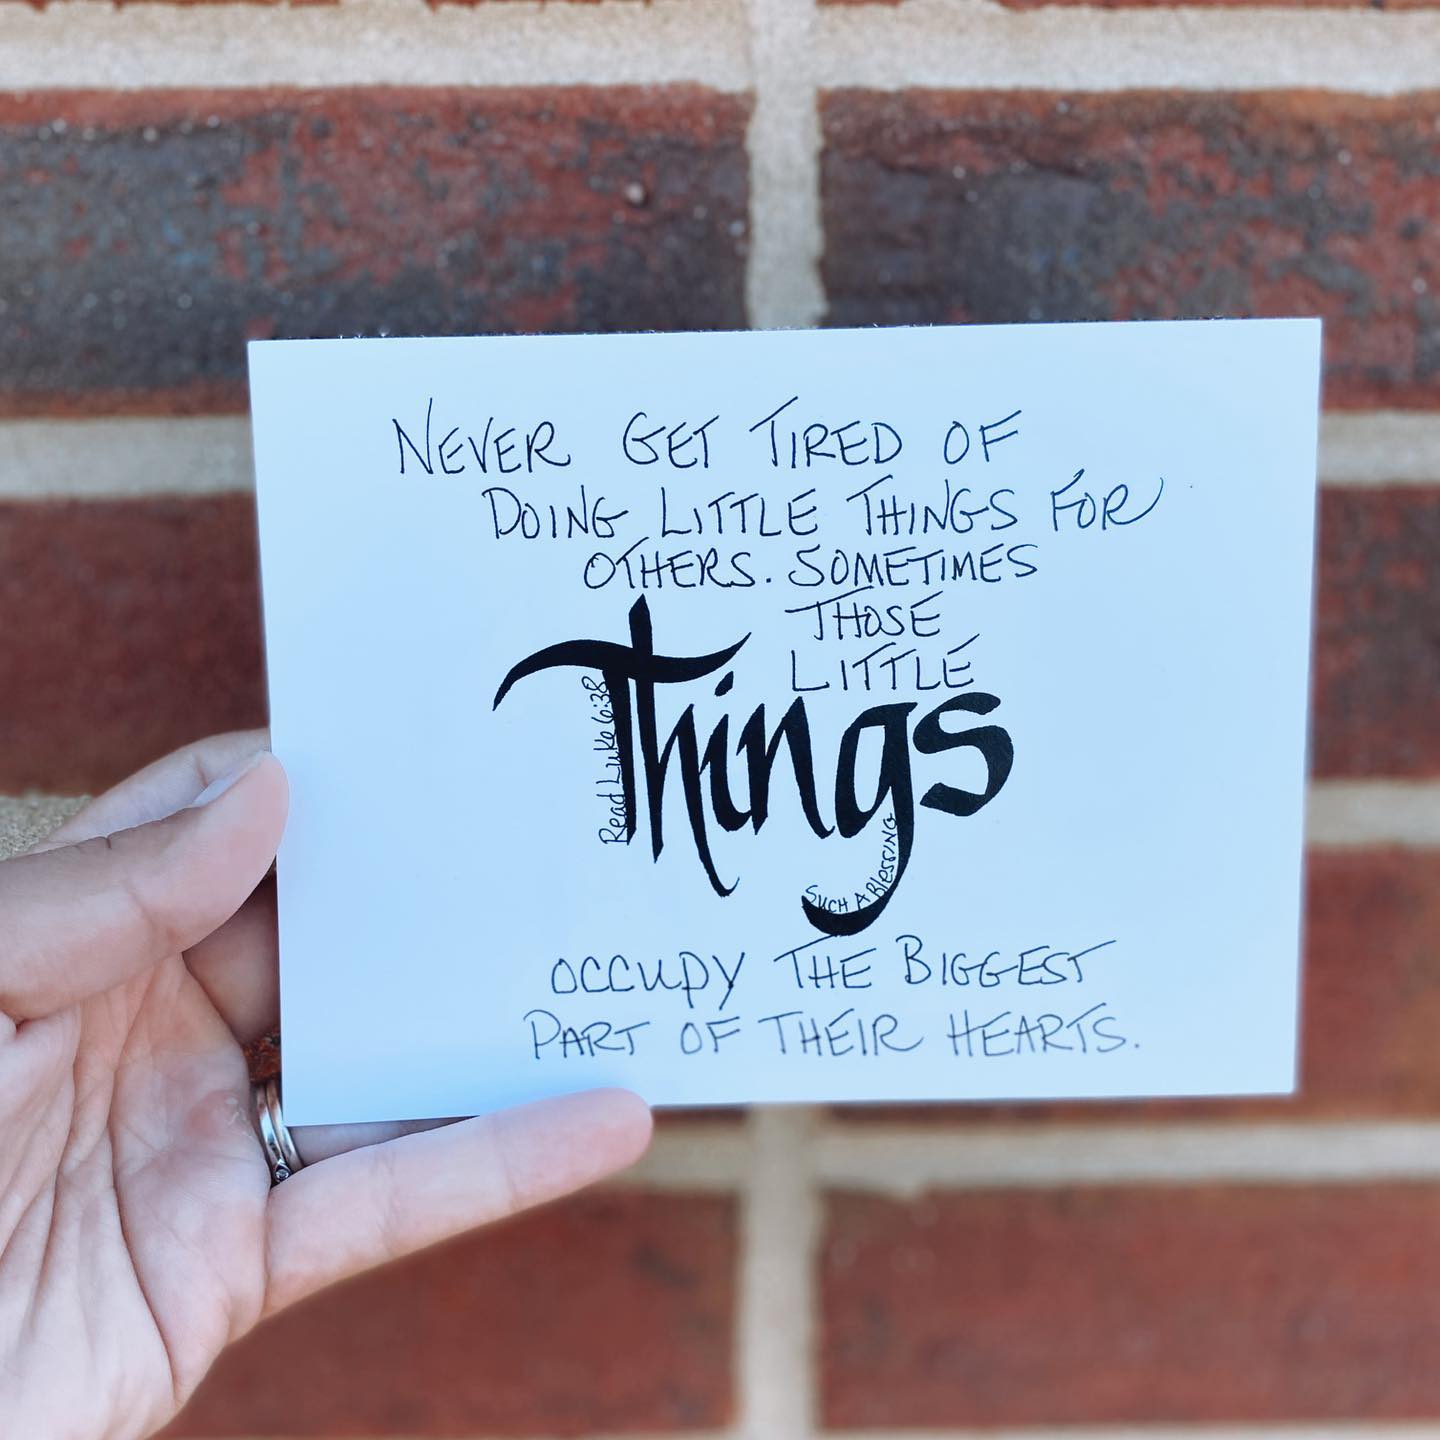 NEVER GET TIRED OF
DOING LITTLE THINGS FOR
OTHERS. SOMETIMES
THOSE
LITTLE
Things
Read Luke 6:38
SUCH A Blessing
OCCUPY THE BIGGEST
PART OF THEIR HEARTS.